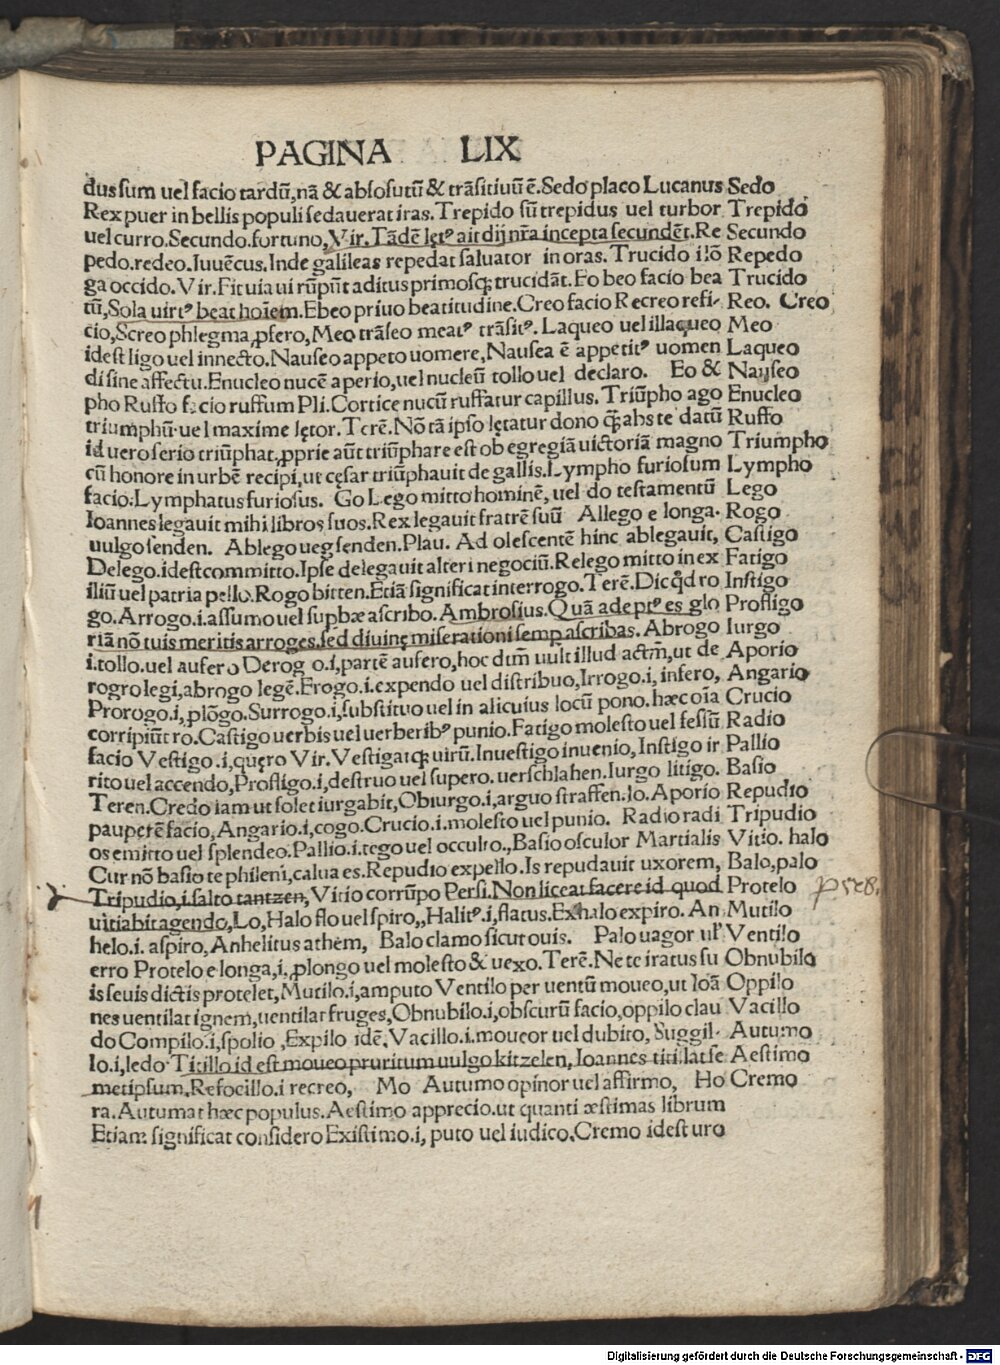 PAGINA LIX
dus sum uel facio tardū,nā & absosutū & trāsitiuū ē.Sedo placo Lucanus Sedo
Rex puer in bellis populi sedauerat iras.Trepido sū trepidus uel turbor Trepido
uel curro.Secundo.fortuno,Vir.Tādē lęt⁹ ait dij nr̄a incepta secundēt.Re Secundo
pedo.redeo.Iuuēcus.Inde galileas repedat saluator in oras. Trucido iłō Repedo
ga occido.Vir.Fit uia ui rūpūt aditus primosq; trucidāt.Eo beo facio bea Trucido
tū,Sola uirt⁹ beat hoīem.Ebeo priuo beatitudine.Creo facio Recreo refi- Reo. Creo
cio,Screo phlegma ꝓfero,Meo trāseo meat⁹ trāsit⁹. Laqueo uel illaqueo Meo
idest ligo uel innecto.Nauseo appeto uomere,Nausea ē appetit⁹ uomen Laqueo
di sine affectu.Enucleo nucē aperio,uel nucleū tollo uel declaro. Eo & Nauseo
pho Ruffo facio ruffum Pli.Cortice nucū ruffatur capillus. Triūpho ago Enucleo
triumphū uel maxime lętor.Terē.Nō tā ipso lętatur dono q̄ abs te datū Ruffo
id uero serio triūphat,ꝓprie aūt triūphare est ob egregiā uictoriā magno Triumpho
cū honore in urbē recipi,ut cesar triūphauit de gallis.Lympho furiosum Lympho
facio.Lymphatus furiosus. Go Lego mitto hominē, uel do testamentū Lego
Ioannes legauit mihi libros suos.Rex legauit fratrē suū Allego e longa. Rogo
uulgo senden. Ablego ueg senden.Plau. Ad olescentē hinc ablegauit, Castigo
Delego.idest committo.Ipse delegauit alteri negociū.Relego mitto in ex Fatigo
iliū uel patria pello.Rogo bitten.Etiā significat interrogo.Terē.Dic q̇d ro Instigo
go.Arrogo.i.assumo uel supbæ ascribo. Ambrosius.Quā adept⁹ es glo Profligo
riā nō tuis meritis arroges.sed diuinę miserationi semp ascribas. Abrogo Iurgo
i.tollo.uel aufero Derog o.i,partē aufero,hoc dtm̄ uult illud actm̄,ut de Aporio
rogro legi,abrogo legē.Erogo.i.expendo uel distribuo,Irrogo.i, infero, Angario
Prorogo.i,plōgo.Surrogo.i,substituo uel in alicuius locū pono.hæc oīa Crucio
corripiūt ro.Castigo uerbis uel uerberib⁹ punio.Fatigo molesto uel fessū Radio
facio Vestigo .i,quęro Vir.Vestigatq; uirū.Inuestigo inuenio,Instigo ir Pallio
rito uel accendo,Profligo.i,destruo uel supero.uerschlahen.Iurgo litigo. Basio
Teren.Credo iam ut solet iurgabit,Obiurgo.i,arguo straffen.Io.Aporio Repudio
pauperē facio,Angario.i,cogo.Crucio.i.molesto uel punio. Radio radi Tripudio
os emitto uel splendeo.Pallio.i.tego uel occulto.,Basio osculor Martialis Vitio. halo
Cur nō basio te phileni,calua es.Repudio expello.Is repudauit uxorem, Balo,palo
Tripudio,i.salto tantzen,Vitio corrūpo Persi.Non liceat facere id quod Protelo
uitiabit agendo,Lo,Halo flo uel spiro,,Halit⁹.i,flatus.Exhalo expiro. An Mutilo
helo.i. aspiro,Anhelitus athem, Balo clamo sicut ouis. Palo uagor ul' Ventilo
erro Protelo e longa,i,ꝓlongo uel molesto & uexo.Terē.Ne te iratus su Obnubilo
is seuis dictis protelet,Mutilo.i,amputo Ventilo per uentū moueo,ut Ioā Oppilo
nes uentilat ignem,uentilat fruges,Obnubilo.i,obscurū facio,oppilo clau Vacillo
do Compilo.i,spolio ,Expilo idē,Vacillo.i.moueor uel dubito, Suggil- Autumo
lo.i,ledo Titillo id est moueo pruritum uulgo kitzelen, Ioannes titillat se Aestimo
metipsum,Refocillo.i recreo, Mo Autumo opinor uel affirmo, Ho Cremo
ra.Autumat hæc populus.Aestimo apprecio.ut quanti æstimas librum
Etiam significat considero Existimo.i, puto uel iudico.Cremo idest uro
Digitalisierung gefördert durch die Deutsche Forschungsgemeinschaft - DFG